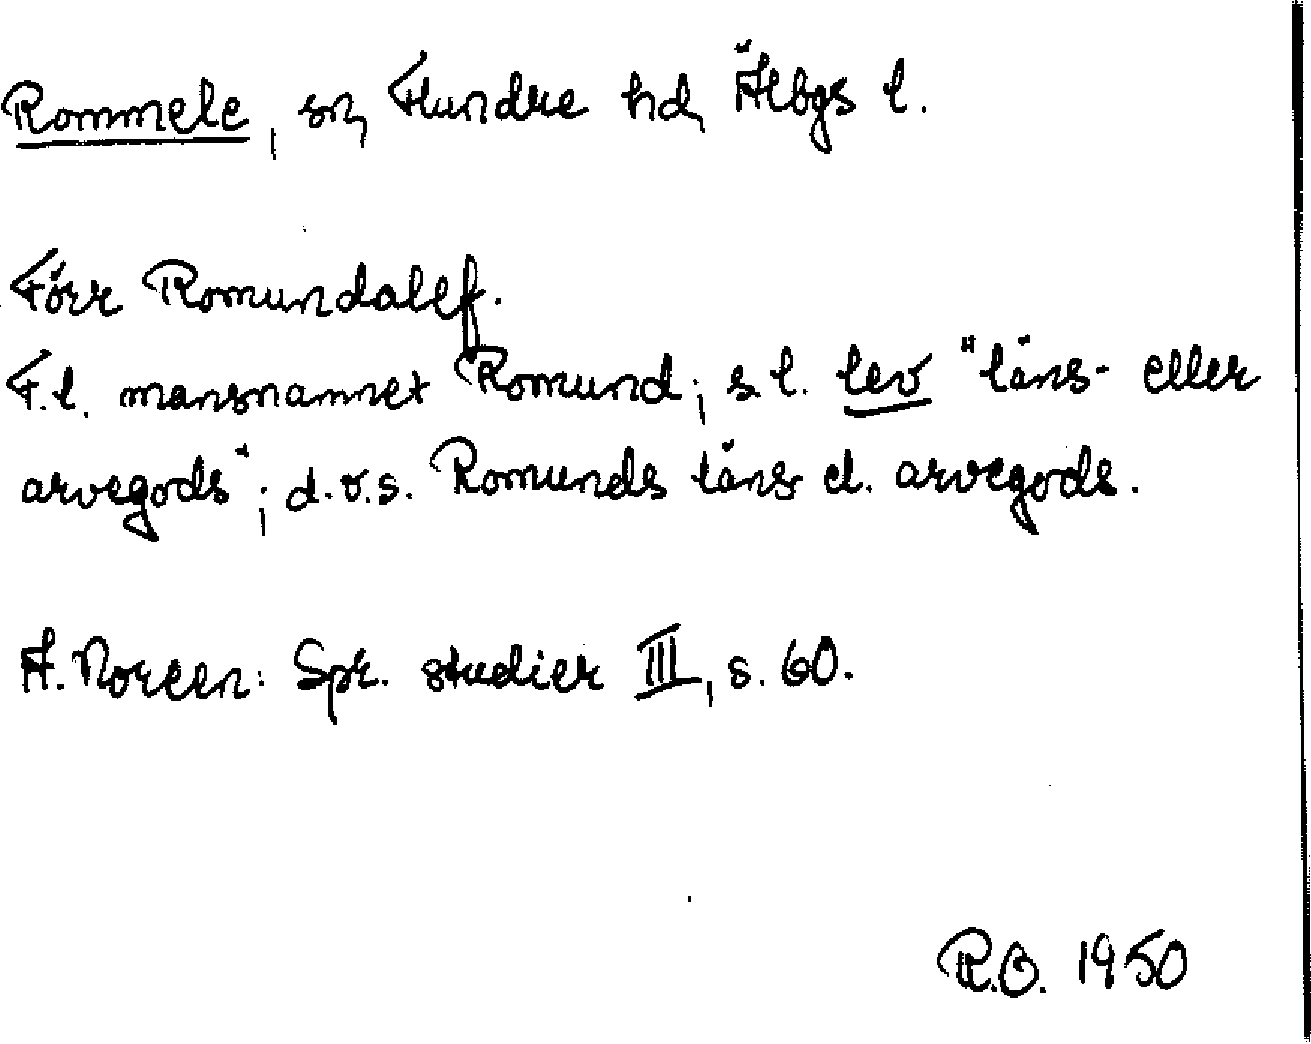 Rommele, sn, Flundre hd, Älbgs l.
Förr Romundalef.
F.l. mansnamnet Romund; s.l. lev "läns- eller
arvegods"; d.v.s. Romunds läns- el. arvegods.
A. Noreen: Spr. studier III, s. 60.
R.O. 1950